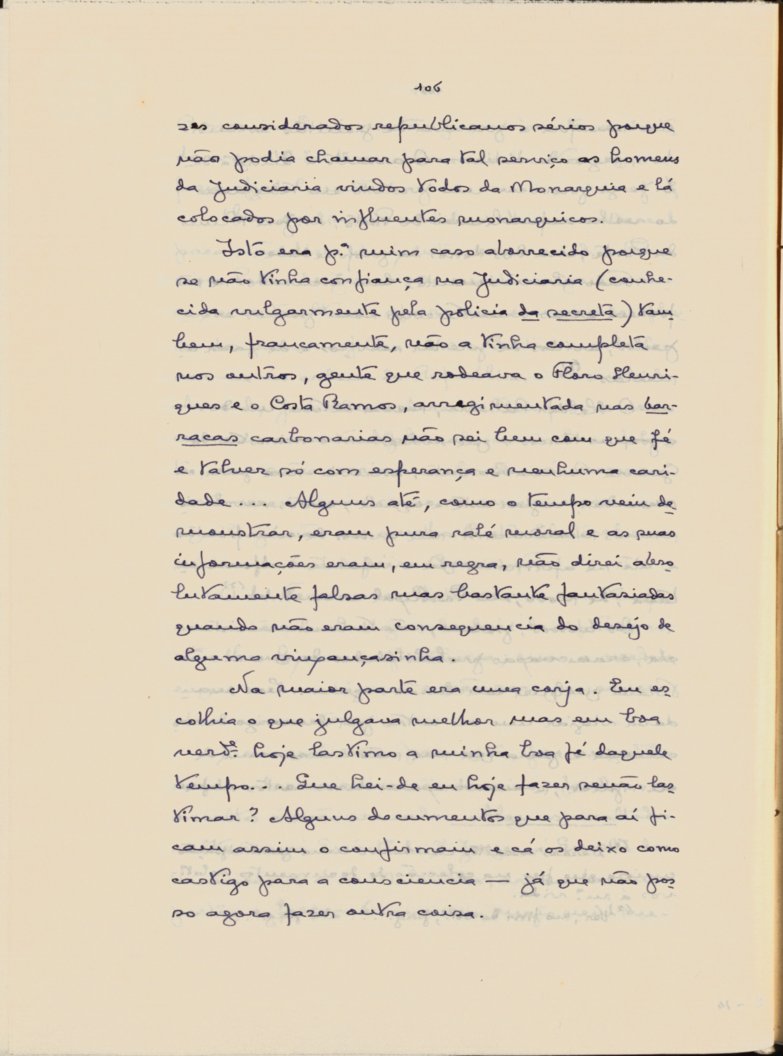 106
zes considerados republicanos sérios porque
não podia chamar para tal serviço os homens
da Judiciaria vindos todos da Monarquia e lá
colocados por influentes monarquicos.
Isto era p.ª mim caso aborrecido porque
se não tinha confiança na Judiciaria (conhe-
cida vulgarmente pela policia da secreta) tam-
bem, francamente, não a tinha completa
nos outros, gente que rodeava o Floro Henri-
ques e o Costa Ramos, arregimentada nas bar-
racas carbonarias não sei bem com que fé
e talvez só com esperança e nenhuma cari-
dade... Alguns até, como o tempo veiu de-
monstrar, eram pura ralé moral e as suas
informações eram, em regra, não direi abso-
lutamente falsas mas bastante fantasiadas
quando não eram consequencia do desejo de
alguma vingançasinha.
Na maior parte era uma corja. Eu es-
colhia o que julgava melhor mas em boa
verd.e hoje lastimo a minha boa fé daquele
tempo... Que hei-de eu hoje fazer senão las-
timar? Alguns documentos que para aí fi-
cam assim o confirmam e cá os deixo como
castigo para a consciencia — já que não pos-
so agora fazer outra coisa.